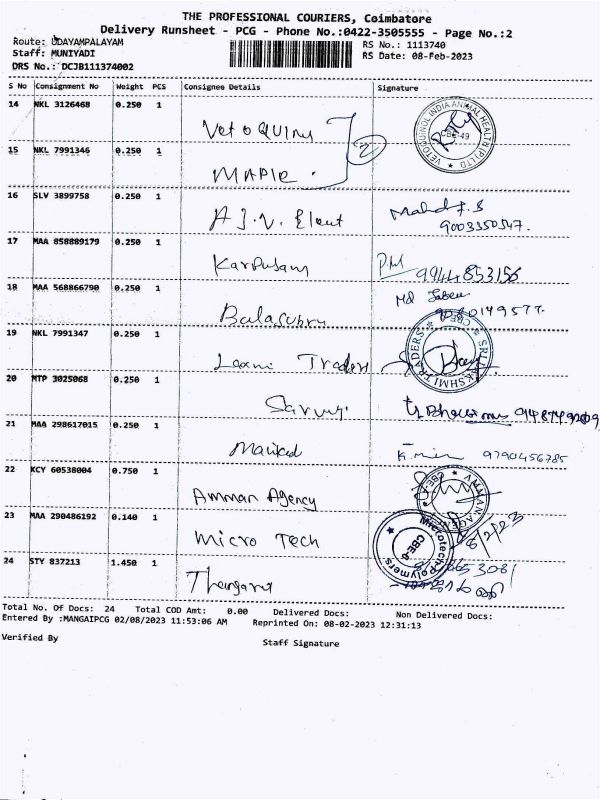 THE PROFESSIONAL COURIERS, Coimbatore
Delivery Runsheet - PCG - Phone No.:0422-3505555 - Page No.:2
Route: UDAYAMPALAYAM
Staff: MUNIYADI
DRS No.: DCJB111374002
RS No.: 1113740
RS Date: 08-Feb-2023
S No Consignment No Weight PCS Consignee Details Signature
14 NKL 3126468 0.250 1
Vetoquiny
VETOQUINOL INDIA ANIMAL HEALTH (P) LTD
CBE-49
15 NKL 7991346 0.250 1
2
Maple.
16 SLV 3899758 0.250 1
A.J.V. Elant
9003350547.
17 MAA 858889179 0.250 1
Karpusam
9944853156
18 MAA 568866790 0.250 1
Balasubru
19 NKL 7991347 0.250 1
Laxmi Traders
SRI LAKSHMI TRADERS
CBE
20 MTP 3025068 0.250 1
21 MAA 298617015 0.250 1
9790456785
22 KCY 60538004 0.750 1
Amman Agency
AMMAN AGENCY
23 MAA 290486192 0.140 1
Micro Tech
Microtech Polymers
CBE-6
8/2/23
24 STY 837213 1.450 1
Total No. Of Docs: 24 Total COD Amt: 0.00 Delivered Docs: Non Delivered Docs:
Entered By :MANGAIPCG 02/08/2023 11:53:06 AM Reprinted On: 08-02-2023 12:31:13
Verified By
Staff Signature